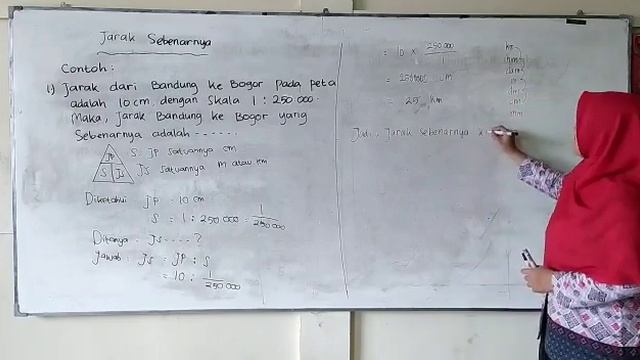 Jarak Sebenarnya
Contoh :
1) Jarak dari Bandung ke Bogor pada peta
adalah 10 cm, dengan Skala 1 : 250.000.
Maka, Jarak Bandung ke Bogor yang
Sebenarnya adalah ------.
JP
S JS
S : JP satuannya cm
JS satuannya m atau km
Diketahui JP = 10 cm
S = 1 : 250.000 = 1/250.000
Ditanya : JS .... ?
Jawab : JS = JP : S
= 10 : 1/250.000
= 10 x 250.000/1
= cm
= 25 km
km
hm
dam
m
dm
cm
mm
Jadi, Jarak Sebenarnya